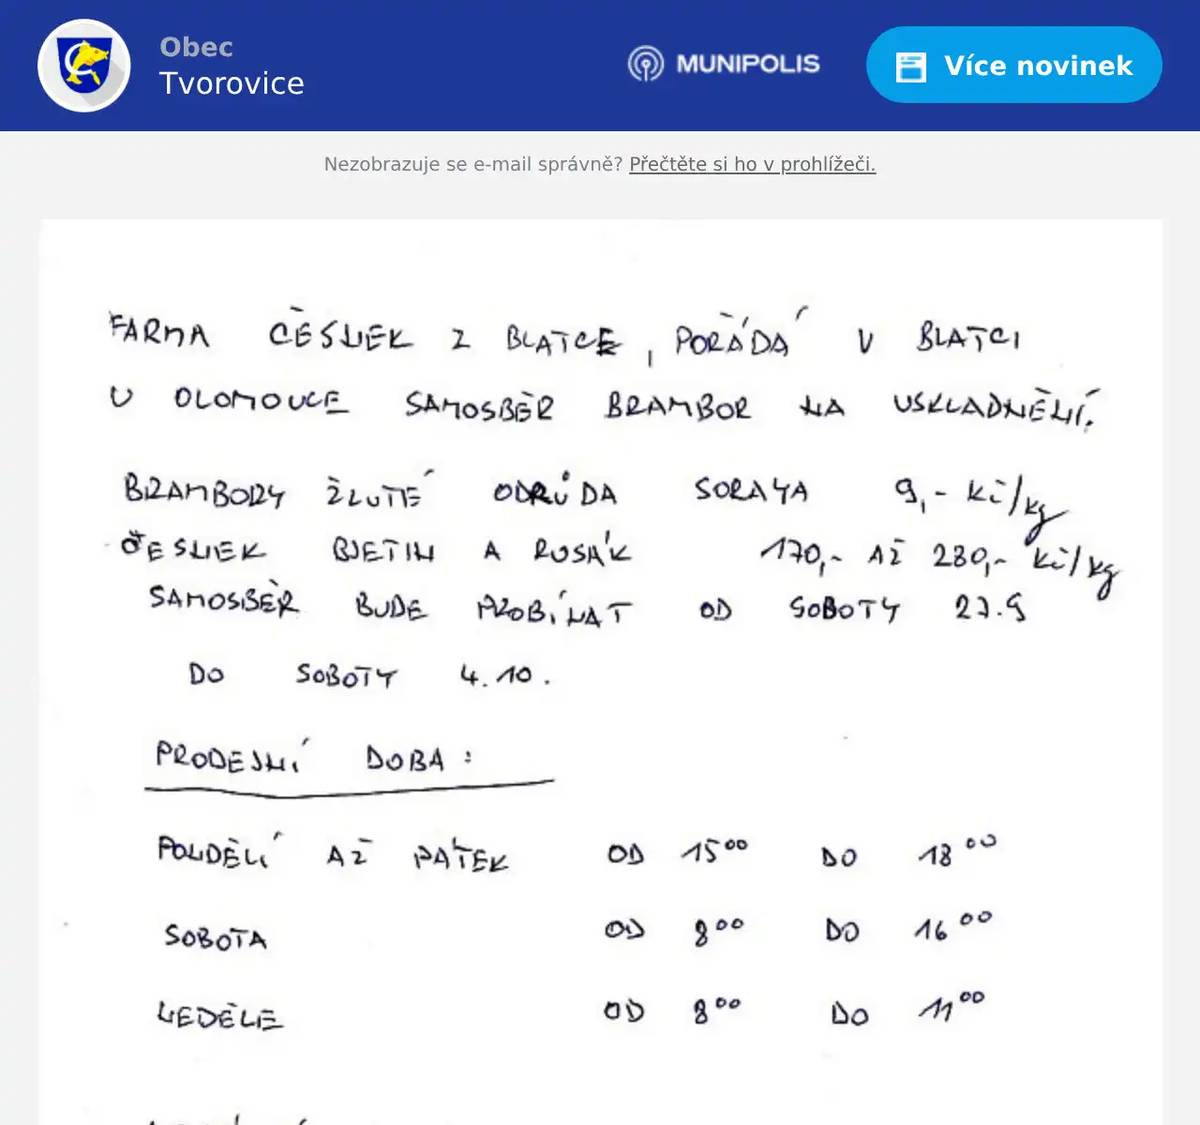 Obec
Tvorovice
MUNIPOLIS
Více novinek
Nezobrazuje se e-mail správně? Přečtěte si ho v prohlížeči.
FARMA ČESNEK Z BLATCE, POŘÁDÁ V BLATCI
U OLOMOUCE SAMOSBĚR BRAMBOR NA USKLADNĚNÍ.
BRAMBORY ŽLUTÉ ODRŮDA SORAYA 9,- Kč/kg
ČESNEK BJETIN A RUSÁK 170,- AŽ 230,- Kč/kg
SAMOSBĚR BUDE PROBÍHAT OD SOBOTY 27.9
DO SOBOTY 4.10.
PRODEJNÍ DOBA:
PONDĚLÍ AŽ PÁTEK OD 15⁰⁰ DO 18⁰⁰
SOBOTA OD 8⁰⁰ DO 16⁰⁰
NEDĚLE OD 8⁰⁰ DO 11⁰⁰